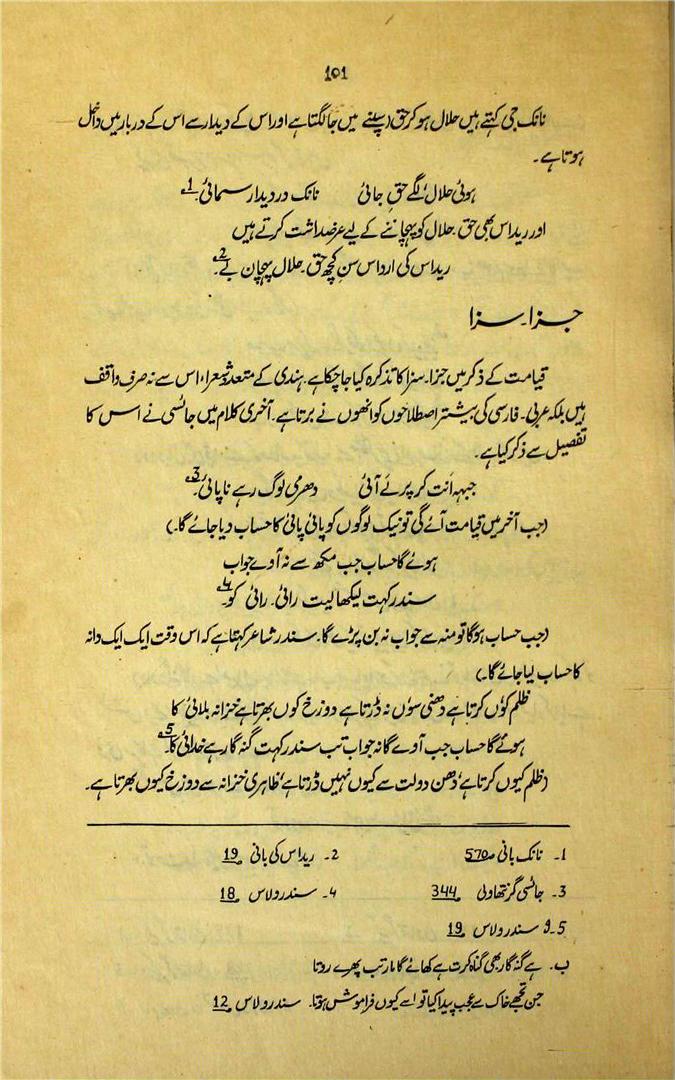 101
نانک جی کہتے ہیں حلال ہو کر حق (سینے میں جا لگتا ہے اور اس کے دیدار سے اس کے دربار میں داخل
ہوتا ہے۔
ہوئی حلال لگے حقِ جائی نانک در دیدار سمائی۔ 1
اور ریداس بھی حق۔ حلال کو پہچاننے کے لیے عرضداشت کرتے ہیں
ریداس کی ارداس سن کچھ حق۔ حلال پہچان بے۔ 2
جزا۔ سزا
قیامت کے ذکر میں جزا۔ سزا کا تذکرہ کیا جا چکا ہے۔ ہندی کے متعدد شعراء اس سے نہ صرف واقف
ہیں بلکہ عربی۔ فارسی کی بیشتر اصطلاحوں کو انھوں نے برتا ہے۔ آخری کلام میں جائسی نے اس کا
تفصیل سے ذکر کیا ہے۔
جبہہ اَنت کر پرئے آئی دھرمی لوگ رہے نا پائی۔ 3
(جب آخر میں قیامت آئے گی تو نیک لوگوں کو پائی پائی کا حساب دیا جائے گا۔)
ہوئے گا حساب جب مکھ سے نہ آوے جواب
سندر کہت لیکھا لیت رائی۔ رائی کو۔ 4
(جب حساب ہو گا تو منہ سے جواب نہ بن پڑے گا۔ سندر شاعر کہتا ہے کہ اس وقت ایک ایک دانہ
کا حساب لیا جائے گا۔)
ظلم کوں کرتا ہے دھنی سوں نہ ڈرتا ہے دوزخ کوں بھرتا ہے خزانہ بلائی کا
ہوئے گا حساب جب آوے گا نہ جواب تب سندر کہت گنہ گار ہے خدائی کا۔ 5
(ظلم کیوں کرتا ہے، دھن دولت سے کیوں نہیں ڈرتا ہے، ظاہری خزانہ سے دوزخ کیوں بھرتا ہے۔
1۔ نانک بانی ص 570 2۔ ریداس کی بانی 19
3۔ جائسی گرنتھاولی 344 4۔ سندر ولاس 18
5۔ و سندر ولاس 19
ب۔ ہے گنہ گار بھی گناہ کرت ہے کھائے گا مار تب پھرے روتا
جن تجھے خاک سے عجب پیدا کیا تو اسے کیوں فراموش ہوتا۔ سندر ولاس 12